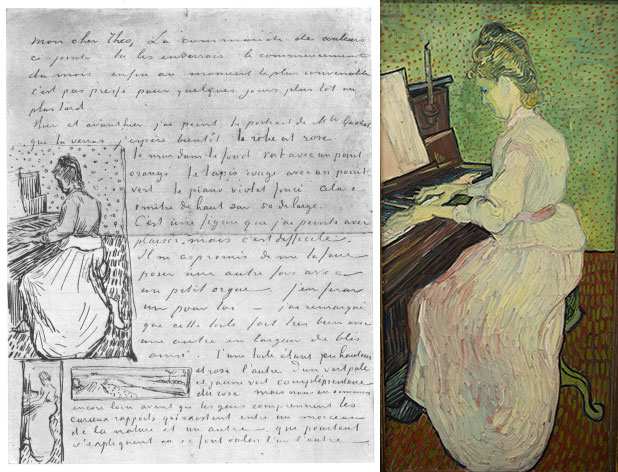 Mon cher Theo, La commande de couleurs
ci-jointe tu les enverrais le commencement
du mois enfin au moment le plus convenable
c'est pas pressé pour quelques jours plus tot ou
plus tard
Hier et avanthier j'ai peint le portrait de Mlle Gachet
que tu verras j'espère bientôt la robe est rose
le mur dans le fond vert avec un point
orangé le tapis rouge avec un point
vert le piano violet foncé cela a
1 mètre de haut sur 50 de large.
C'est une figure que j'ai peinte avec
plaisir, mais c'est difficile.
Il m'a promis de me la faire
poser une autre fois avec
un petit orgue. j'en ferai
un pour toi – j'ai remarqué
que cette toile fait très bien avec
une autre en largeur de blés
ainsi – l'une toile étant en hauteur
et rose l'autre d'un vert pale
et jaune vert complémentaire
du rose mais nous en sommes
encore loin avant que les gens comprennent les
curieux rapports qui existent entre un morceau
de la nature et un autre que pourtant
s'expliquent et se font valoir l'un l'autre.